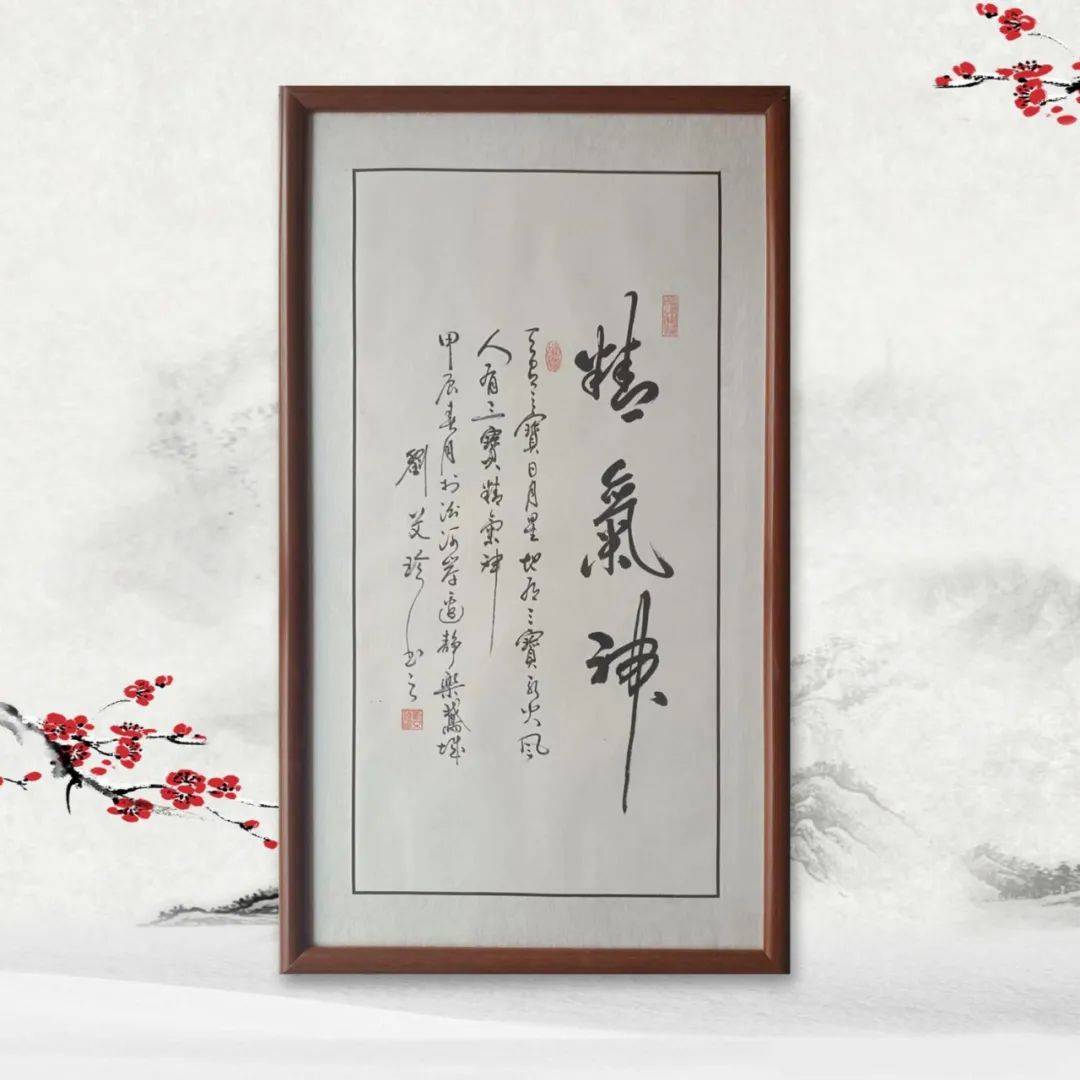 精氣神
天有三寶日月星地有三寶水火風
人有三寶精氣神
甲辰春月於洺河岸邊靜樂鵞城
劉艾珍書